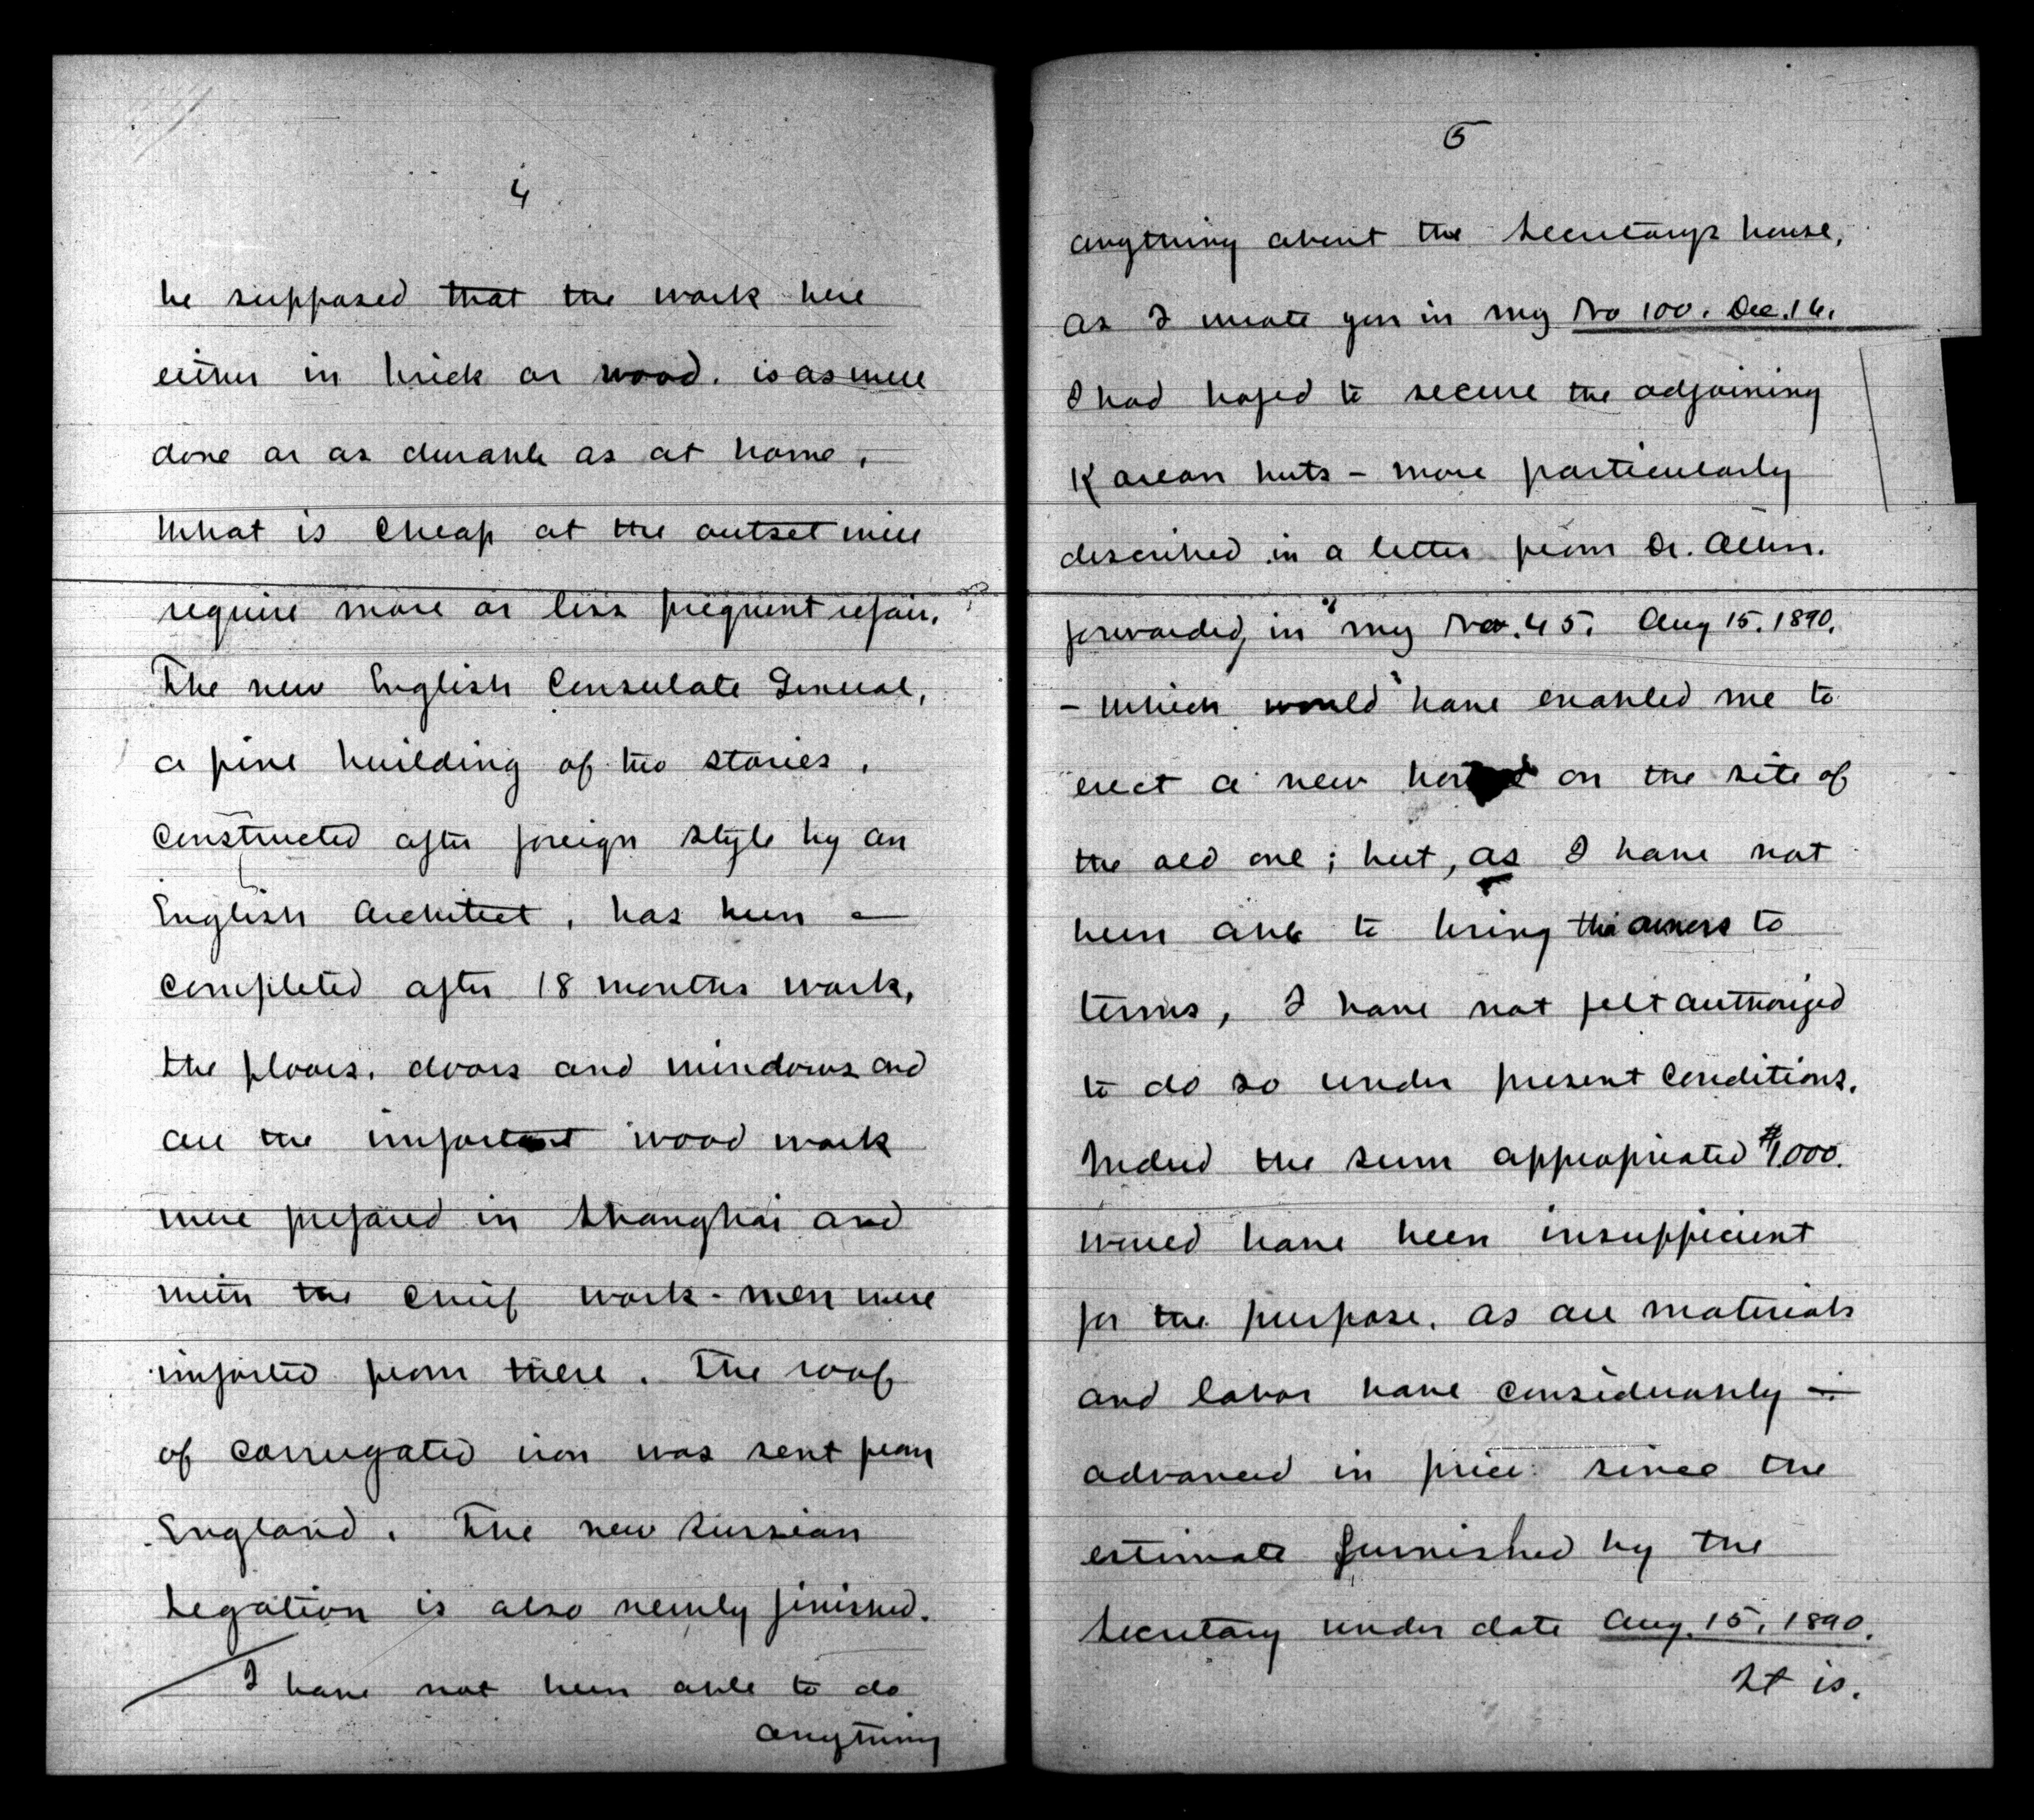 4
be supposed that the work here
either in brick or wood. is as well
done or as durable as at home.
What is cheap at the outset will
require more or less frequent repair.
The new English Consulate General,
a fine building of two stories,
constructed after foreign style by an
English Architect, has been —
completed after 18 months work,
the floors, doors and windows and
all the important wood work
were prepared in Shanghai and
with the chief work-men were
imported from there. The roof
of corrugated iron was sent from
England. The new Russian
Legation is also newly finished.
I have not been able to do
anything
5
anything about the Secretary's house,
As I wrote you in my No 100. Dec. 16.
I had hoped to secure the adjoining
Korean huts – more particularly
described in a letter from Dr. Allen.
forwarded, in my No. 45. Aug 15. 1890.
– which would have enabled me to
erect a new house on the site of
the old one; but, as I have not
been able to bring the owners to
terms, I have not felt authorized
to do so under present conditions.
Indeed the sum appropriated $1,000.
would have been insufficient
for the purpose. as all materials
and labor have considerably —
advanced in price since the
estimate furnished by the
Secretary under date Aug. 15, 1890.
It is.